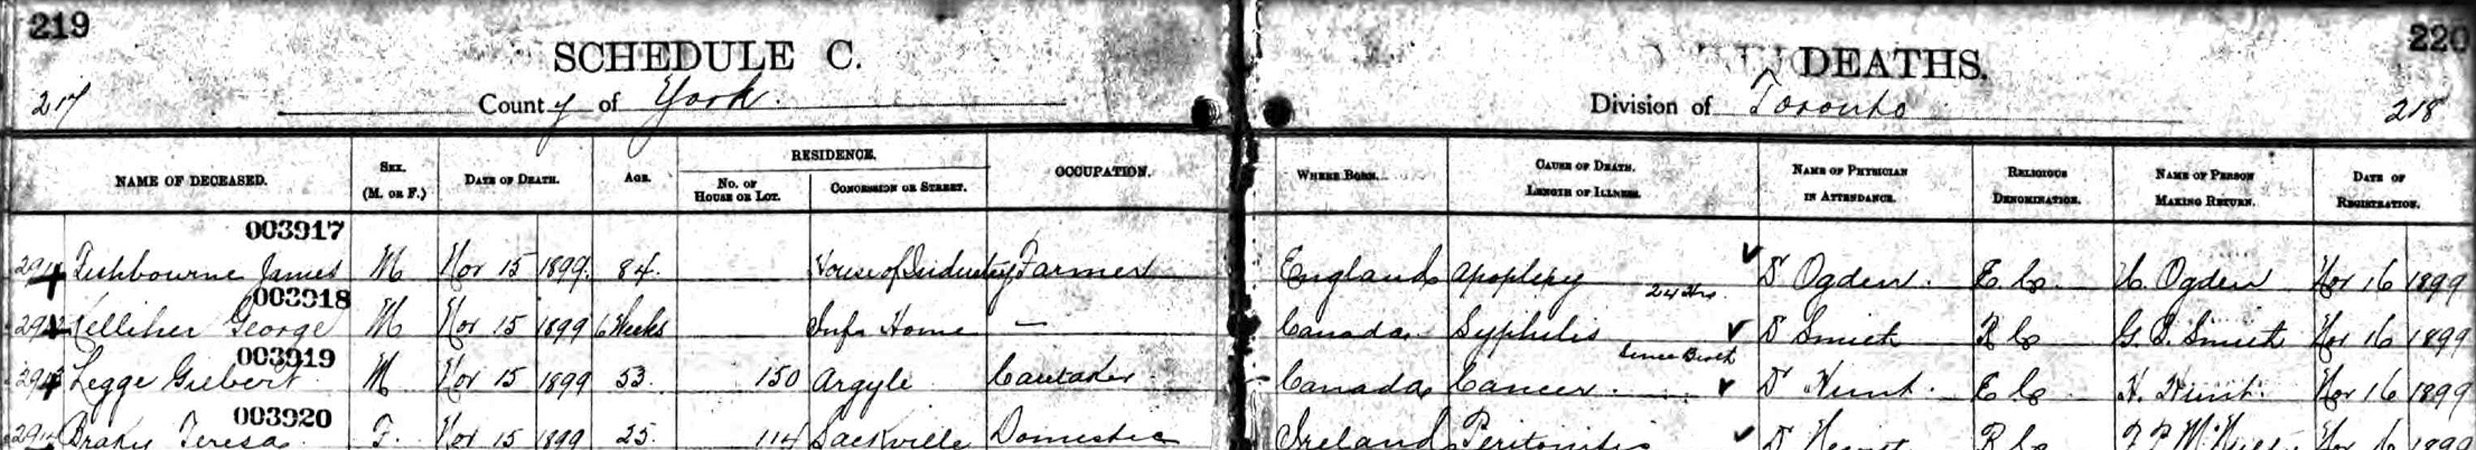 219
SCHEDULE C.
217
County of York.
NAME OF DECEASED.
SEX.
(M. OR F.)
DATE OF DEATH.
AGE.
RESIDENCE.
NO. OF
HOUSE OR LOT.
CONCESSION OR STREET.
OCCUPATION.
220
DEATHS.
Division of Toronto
218
WHERE BORN.
CAUSE OF DEATH.
LENGTH OF ILLNESS.
NAME OF PHYSICIAN
IN ATTENDANCE.
RELIGIOUS
DENOMINATION.
NAME OF PERSON
MAKING RETURN.
DATE OF
REGISTRATION.
003917
Fishbourne James M Nov 15 1899. 84. House of Industry Farmer England apoplexy 24 Hrs. Dr Ogden. E C. U. Ogden Nov 16 1899
003918
Kelliher George M Nov 15 1899 6 Weeks Inft Home — Canada Syphilis Since Birth Dr Smith R C G. B. Smith Nov 16 1899
003919
Legge Gilbert M Nov 15 1899 53. 150 Argyle Caretaker Canada Cancer Dr Hunt. E C H. Hunt. Nov 16 1899
003920
Teresa F. Nov 15 1899 25. 114 Sackville Domestic Ireland Peritonitis Dr R C Nov 16 1899